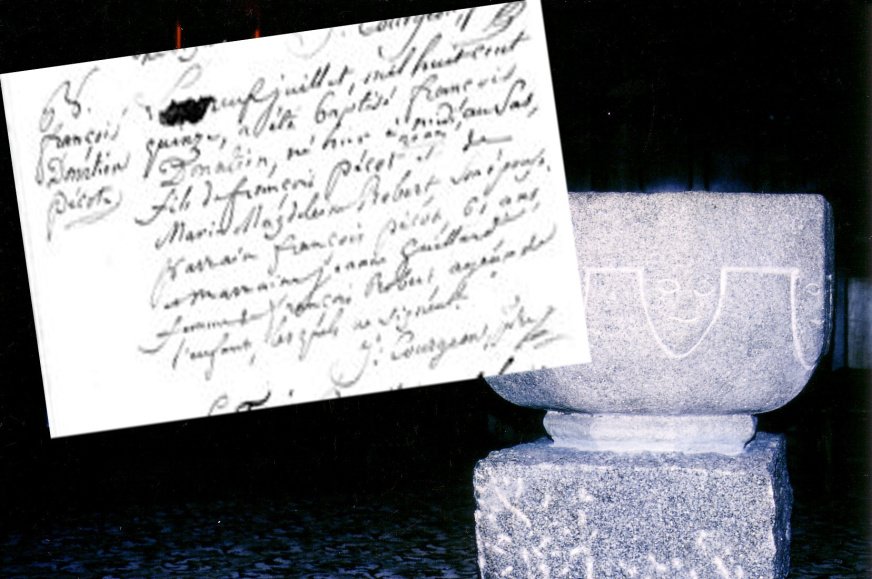 J. Courgeon
B.
François
Donatien
Pécot
Le neuf juillet, mil huit cent
quinze, a été baptisé françois
Donatien, né hier à midi, au Sas,
fils de françois Pécot et de
Marie Magdeleine Robert son épouse.
parrain françois pécot 61 ans
marraine jeanne guillard
femme de françois Robert ayeule de
l'enfant, lesquels ne signent.
J. Courgeon,